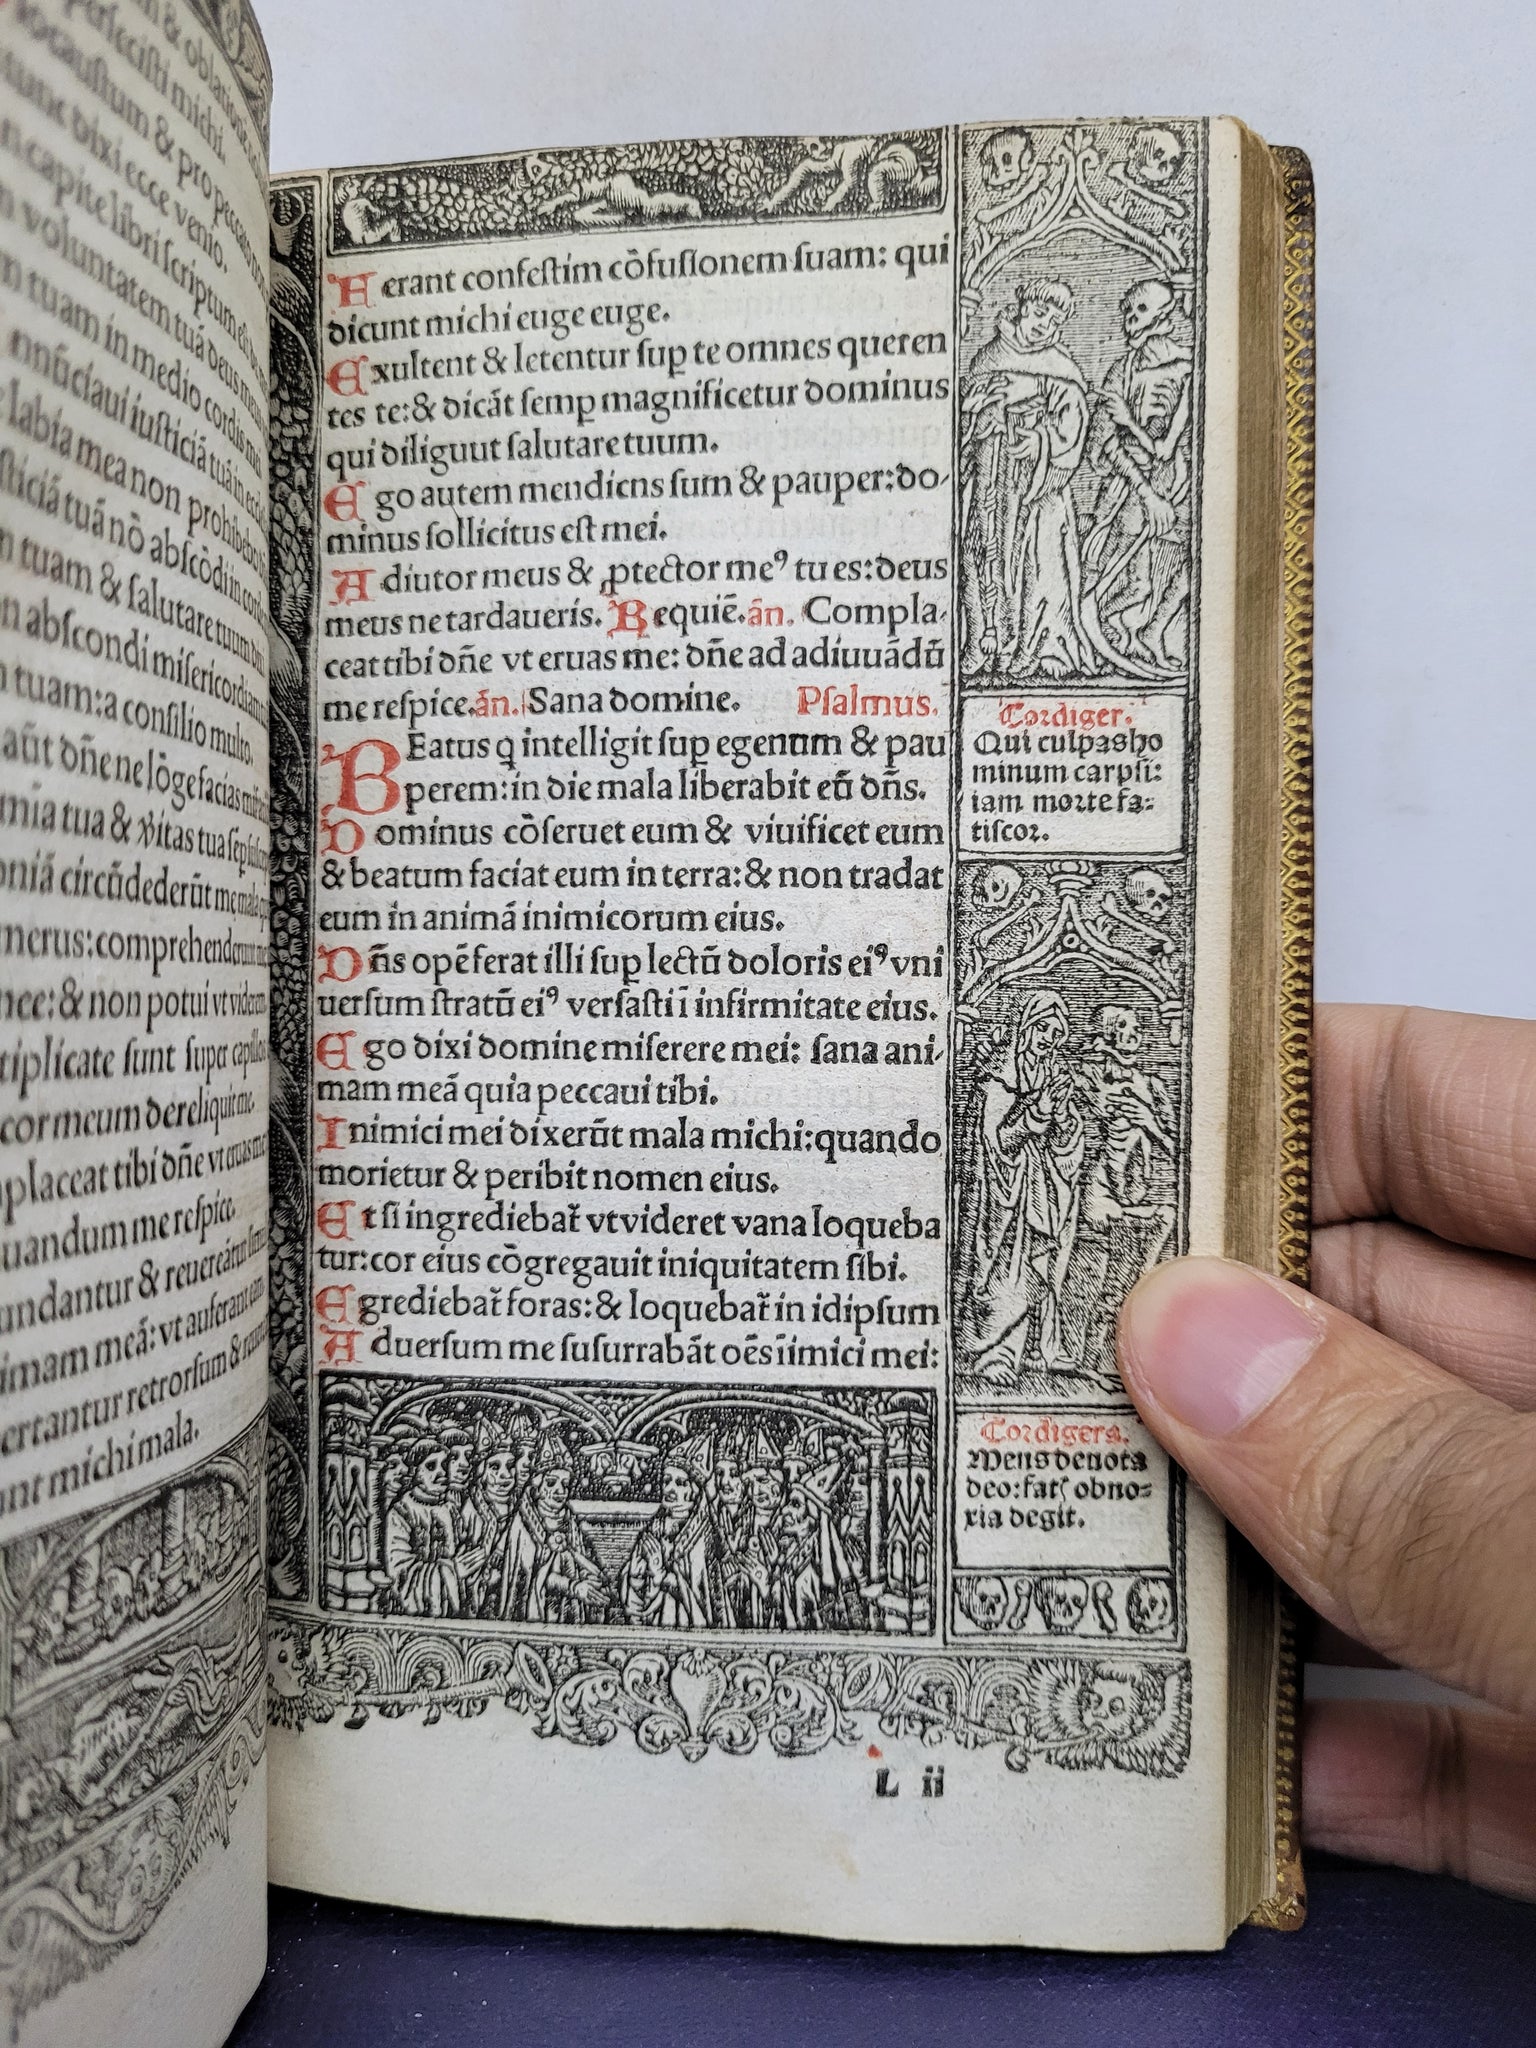 & oblatione
perfecisti michi.
locaustum & pro peccato non
tunc dixi ecce venio.
n capite libri scriptum est de
voluntatem tuā deus meus
tuam in medio cordis mei.
nnūciaui iusticiā tuā in eccle
labia mea non prohibebo
sticiā tuā nō abscōdi in corde
tuam & salutare tuum
on abscondi misericordiam
tuam: a consilio multo.
aūt dn̄e ne lōge facias
mia tua & v̓itas tua semp
oniā circūdederūt me mala
merus: comprehenderunt me
nee: & non potui vt viderem.
tiplicate sunt super capillos
cor meum dereliquit me.
placeat tibi dn̄e vt eruas me
uandum me respice.
undantur & reuereātur
imam meā: vt auferant eam.
ertantur retrorsum &
ant michi mala.
Ferant confestim cōfusionem suam: qui
dicunt michi euge euge.
Exultent & letentur sup̱ te omnes queren
tes te: & dicāt semp̱ magnificetur dominus
qui diliguut salutare tuum.
Ego autem mendicns sum & pauper: do-
minus sollicitus est mei.
Adiutor meus & ꝓtector meꝰ tu es: deus
meus ne tardaueris. Requiē. ān. Compla-
ceat tibi dn̄e vt eruas me: dn̄e ad adiuuādū
me respice. ān. Sana domine. Psalmus.
BEatus q̄ intelligit sup̱ egenum & pau
perem: in die mala liberabit eū dn̄s.
Dominus cōseruet eum & viuificet eum
& beatum faciat eum in terra: & non tradat
eum in animā inimicorum eius.
Dn̄s opē ferat illi sup̱ lectū doloris eiꝰ vni
uersum stratū eiꝰ versasti ī infirmitate eius.
Ego dixi domine miserere mei: sana ani-
mam meā quia peccaui tibi.
Inimici mei dixerūt mala michi: quando
morietur & peribit nomen eius.
Et si ingrediebat̄ vt videret vana loqueba
tur: cor eius cōgregauit iniquitatem sibi.
Egrediebat̄ foras: & loquebat̄ in idipsum
Aduersum me susurrabāt oēs īimici mei:
Cordiger.
Qui culpas ho
minum carpsi:
iam morte fa=
tiscor.
Cordigera.
Mens deuota
deo: fatꝭ obno=
xia degit.
L ii